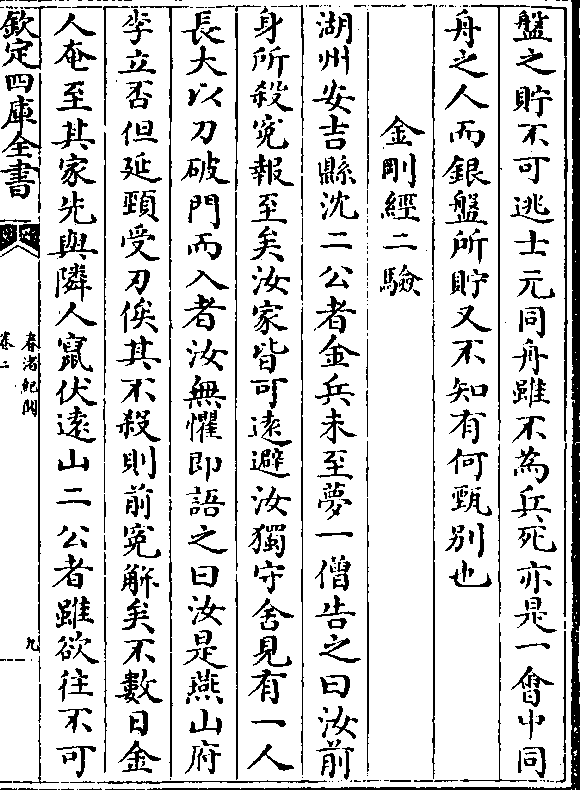 盤之貯不可逃士元同舟雖不為兵死亦是一㑹中同
舟之人而銀盤所貯又不知有何甄别也
金剛經二驗
湖州安吉縣沈二公者金兵未至夢一僧告之曰汝前
身所殺寃報至矣汝家皆可遠避汝獨守舍見有一人
長大以刀破門而入者汝無懼即語之曰汝是燕山府
李立否但延頸受刃俟其不殺則前寃解矣不數日金
人奄至其家先與隣人竄伏遠山二公者雖欲往不可
欽定四庫全書
春渚紀聞
卷二
九